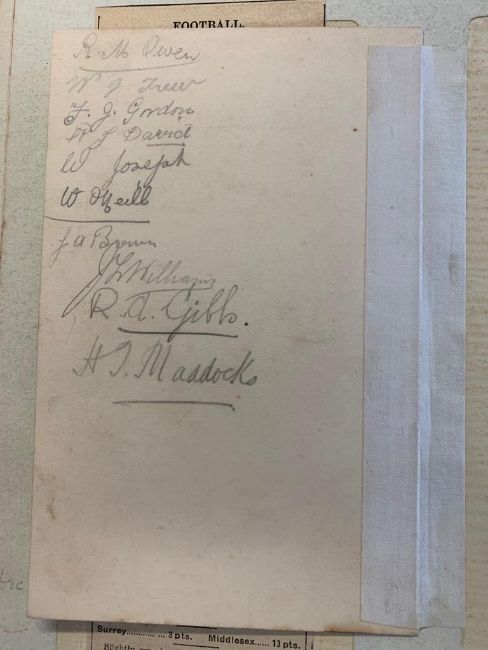 FOOTBALL.
R. M. Owen
Wm J Trew
F. J. Gordon
W T David
W Joseph
W O'Neill
J A Brown
J L Williams
R. A. Gibbs.
H. T. Maddocks
Surrey......... 3 pts. Middlesex...... 13 pts.
Slightly